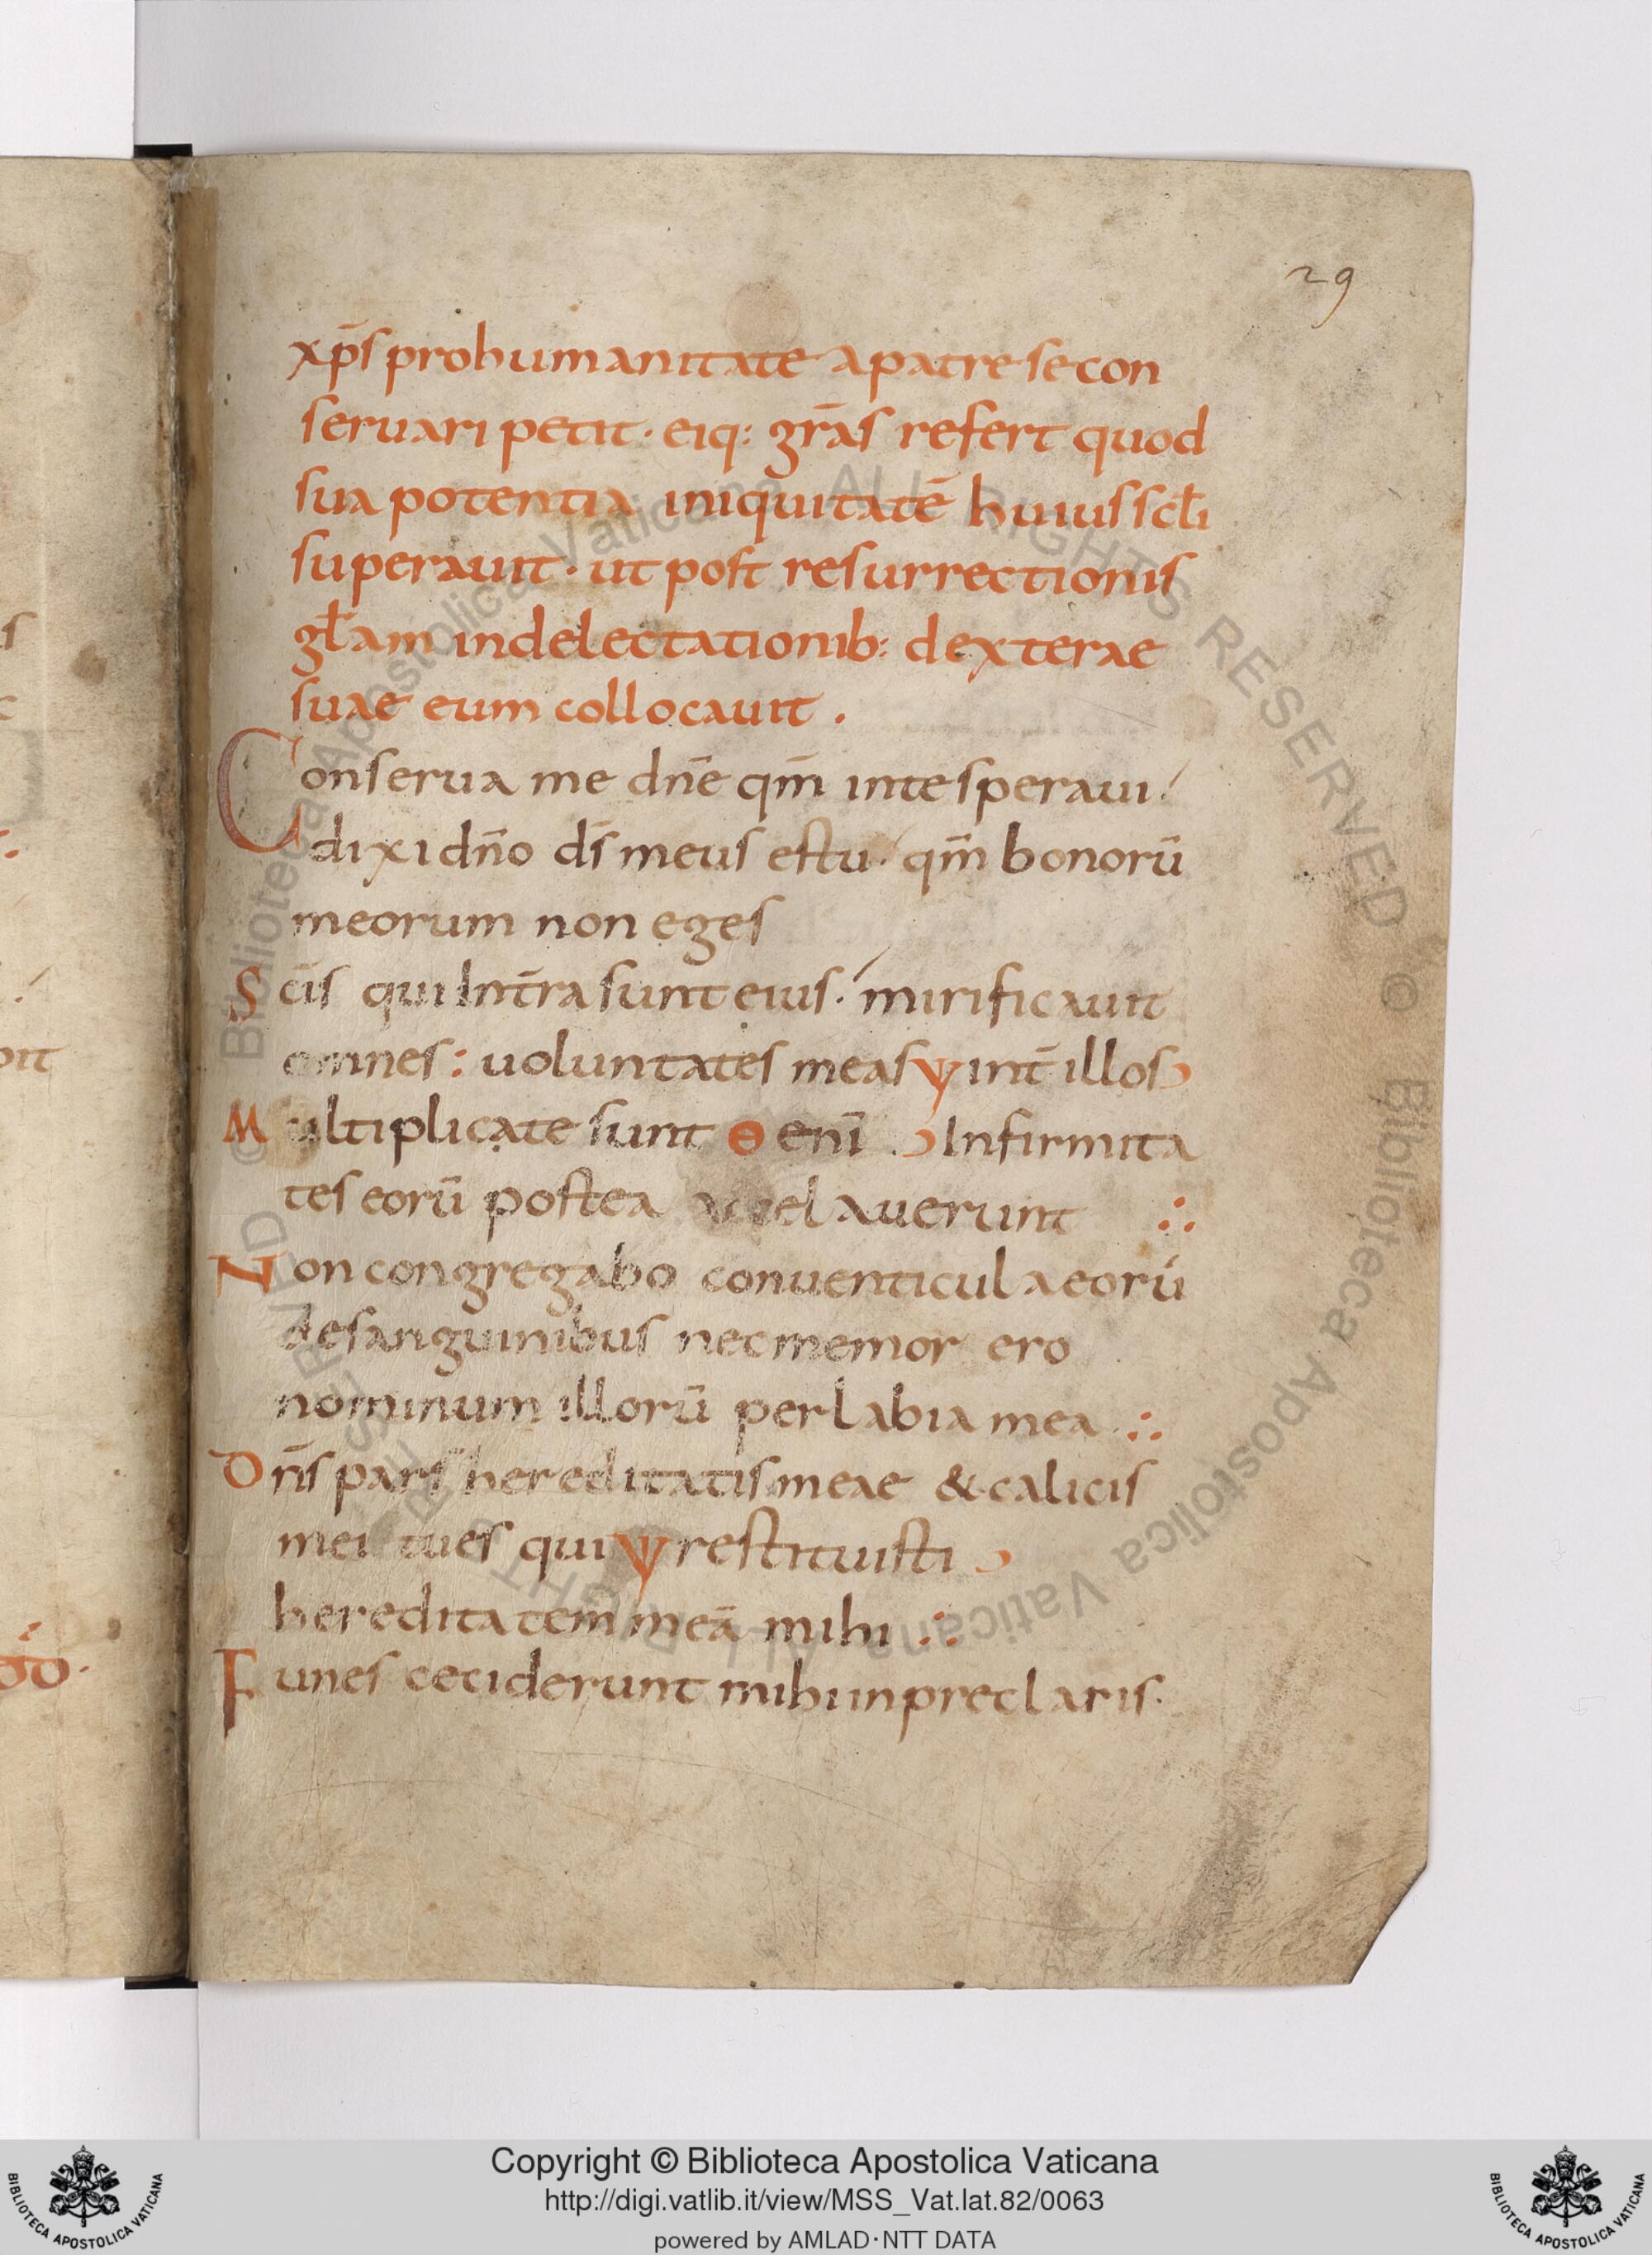 29
xp̄s pro humanitate a patre se con
seruari petit· eiq: gr̄as refert quod
sua potentia iniquitatē huius scl̄i
superauit· ut post resurrectionis
gl̄am in delectationib: dexterae
suae eum collocauit .
Conserua me dn̄e qm̄ in te speraui·
dixi dn̄o ds̄ meus es tu· qm̄ bonorū
meorum non eges
Sc̄is qui In t̄ra sunt eius· mirificauit
omnes: uoluntates meas ÷ int̄ illos
Multiplicate sunt Θ enī . Infirmita
tes eorū postea
Non congregabo conuenticula eorū
de sanguinibus nec memor ero
nominum illorū per labia mea ∴
Dn̄s pars hereditatis meae & calicis
mei tu es qui ÷ restituisti
hereditatem meā mihi ∴
Funes ceciderunt mihi in preclaris·
s
c
oit
Copyright © Biblioteca Apostolica Vaticana
http://digi.vatlib.it/view/MSS_Vat.lat.82/0063
powered by AMLAD·NTT DATA
BIBLIOTECA APOSTOLICA VATICANA
BIBLIOTECA APOSTOLICA VATICANA
© Biblioteca Apostolica Vaticana ALL RIGHTS RESERVED © Biblioteca Apostolica Vaticana ALL RIGHTS RESERVED